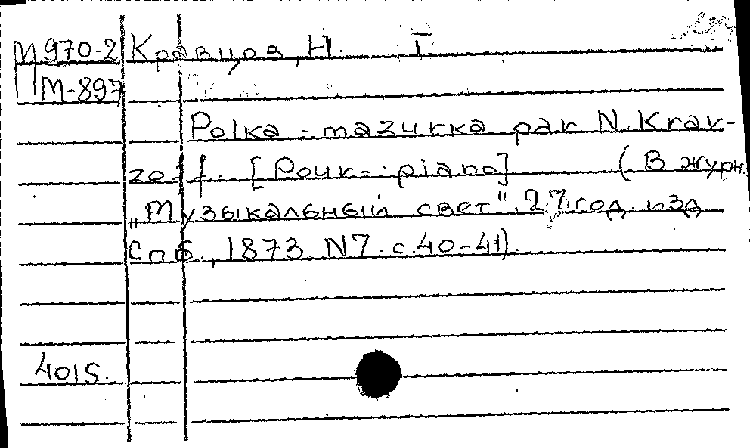 М970-2 Кравцов, Н. I
М-897
Polka-mazurka par N. Krav-
zoff. [Pour piano] (В журн.
„Музыкальный свет". 27 год изд
Спб., 1873 N7. с.40-41).
4015.